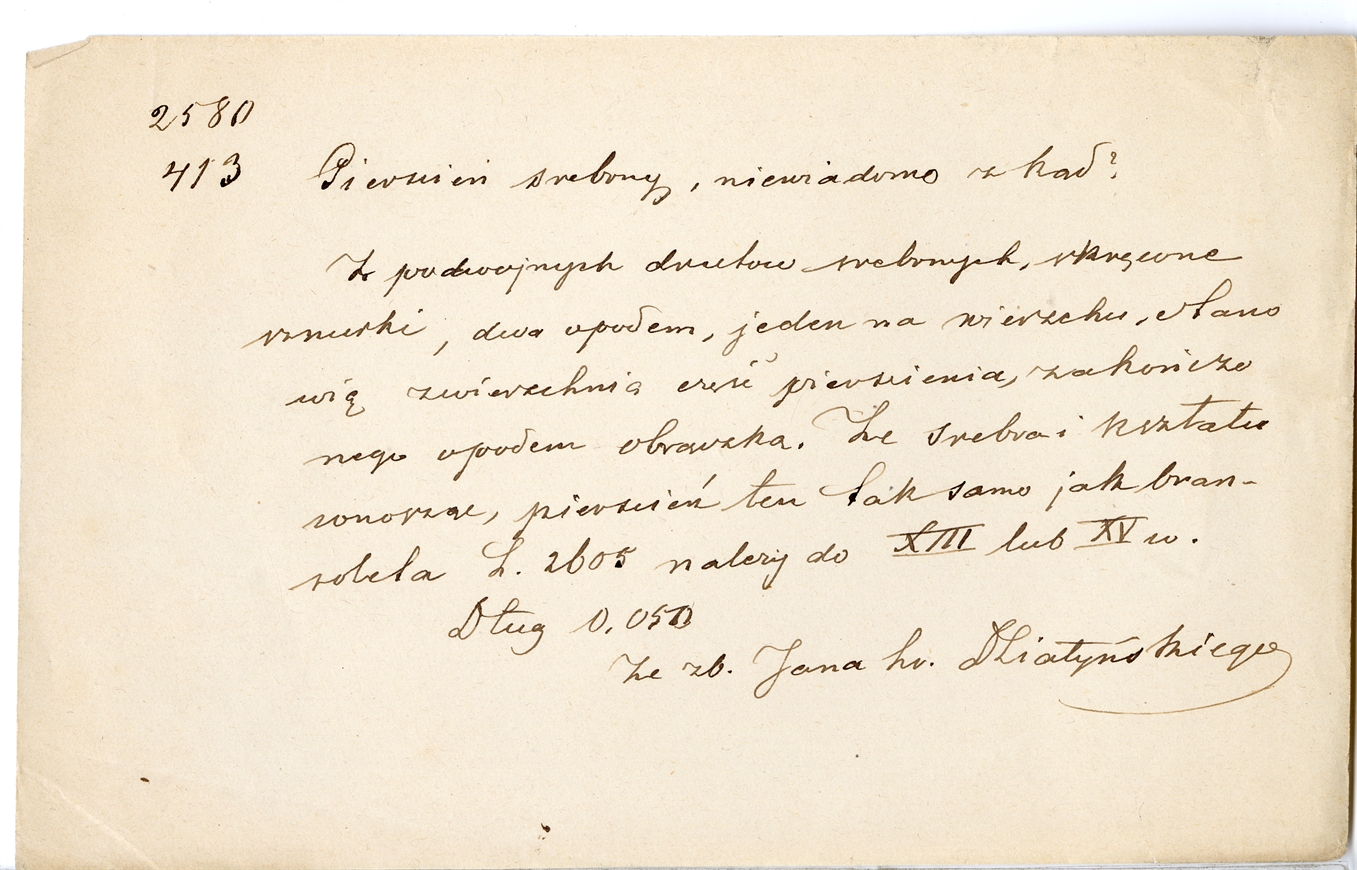 2580
413 Pierscień srebrny, niewiadomo z kad?
Z podwojnych drutow srebrnych, skręcone
sznurki, dwa spodem, jeden na wierzchu, stano
wią zwierzchnia część pierscienia, zakończo
nego spodem obrączka. Ze srebra i kształtu
wnorząc, pierscień ten tak samo jak bran-
soleta L. 2605 nalezy do XIII lub XV w.
Dług 0,050
Ze zb. Jana hr. Działyńskiego